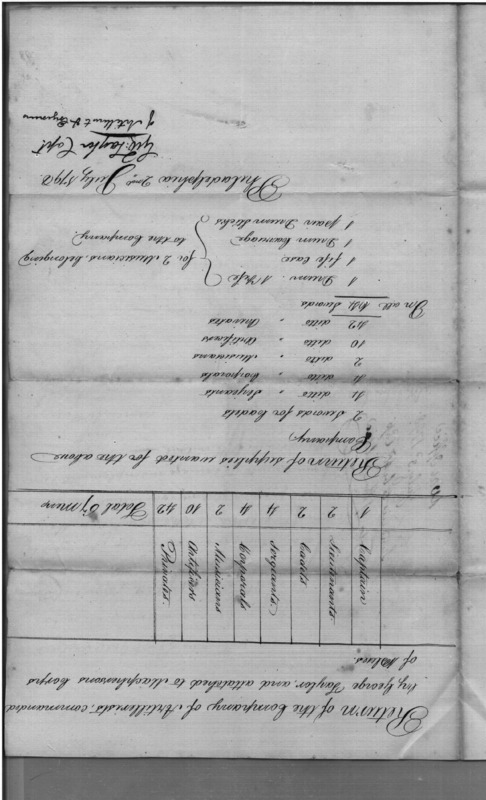 Return of the Company of Artillerists, commanded
by George Taylor, and attached to Macphersons Corps
of Blues.
Captain
Lieutenants
Cadets
Sergeants
Corporals
Musicians
Artificers
Privates
1 2 2 4 4 2 10 42 Total
Return of supplies wanted for the above
Company
2 Swords for Cadets
4 ditto " Sergeants
4 ditto " Corporals
2 ditto " Musicians
10 ditto " Artificers
42 ditto " Privates
In all 64 Swords
1 Drum 1 Fife
1 fife Case
1 Drum Carriage
1 pair Drum Sticks
for 2 Musicians belonging
to the Company.
Philadelphia 2nd July 1798
Geo. Taylor Capt.
of Artillery &